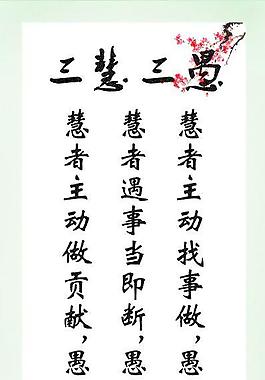 三慧三愚
慧者主动找事做，愚
慧者遇事当即断，愚
慧者主动做贡献，愚